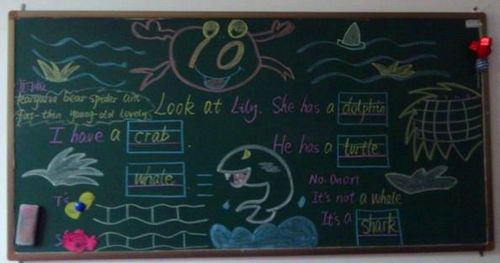 kangaroo bear spider ant
fat-thin young-old lovely
Look at Lily. She has a dolphin
I have a crab.
He has a turtle
whale
No. Don't
It's not a whale
It's a shark
T's